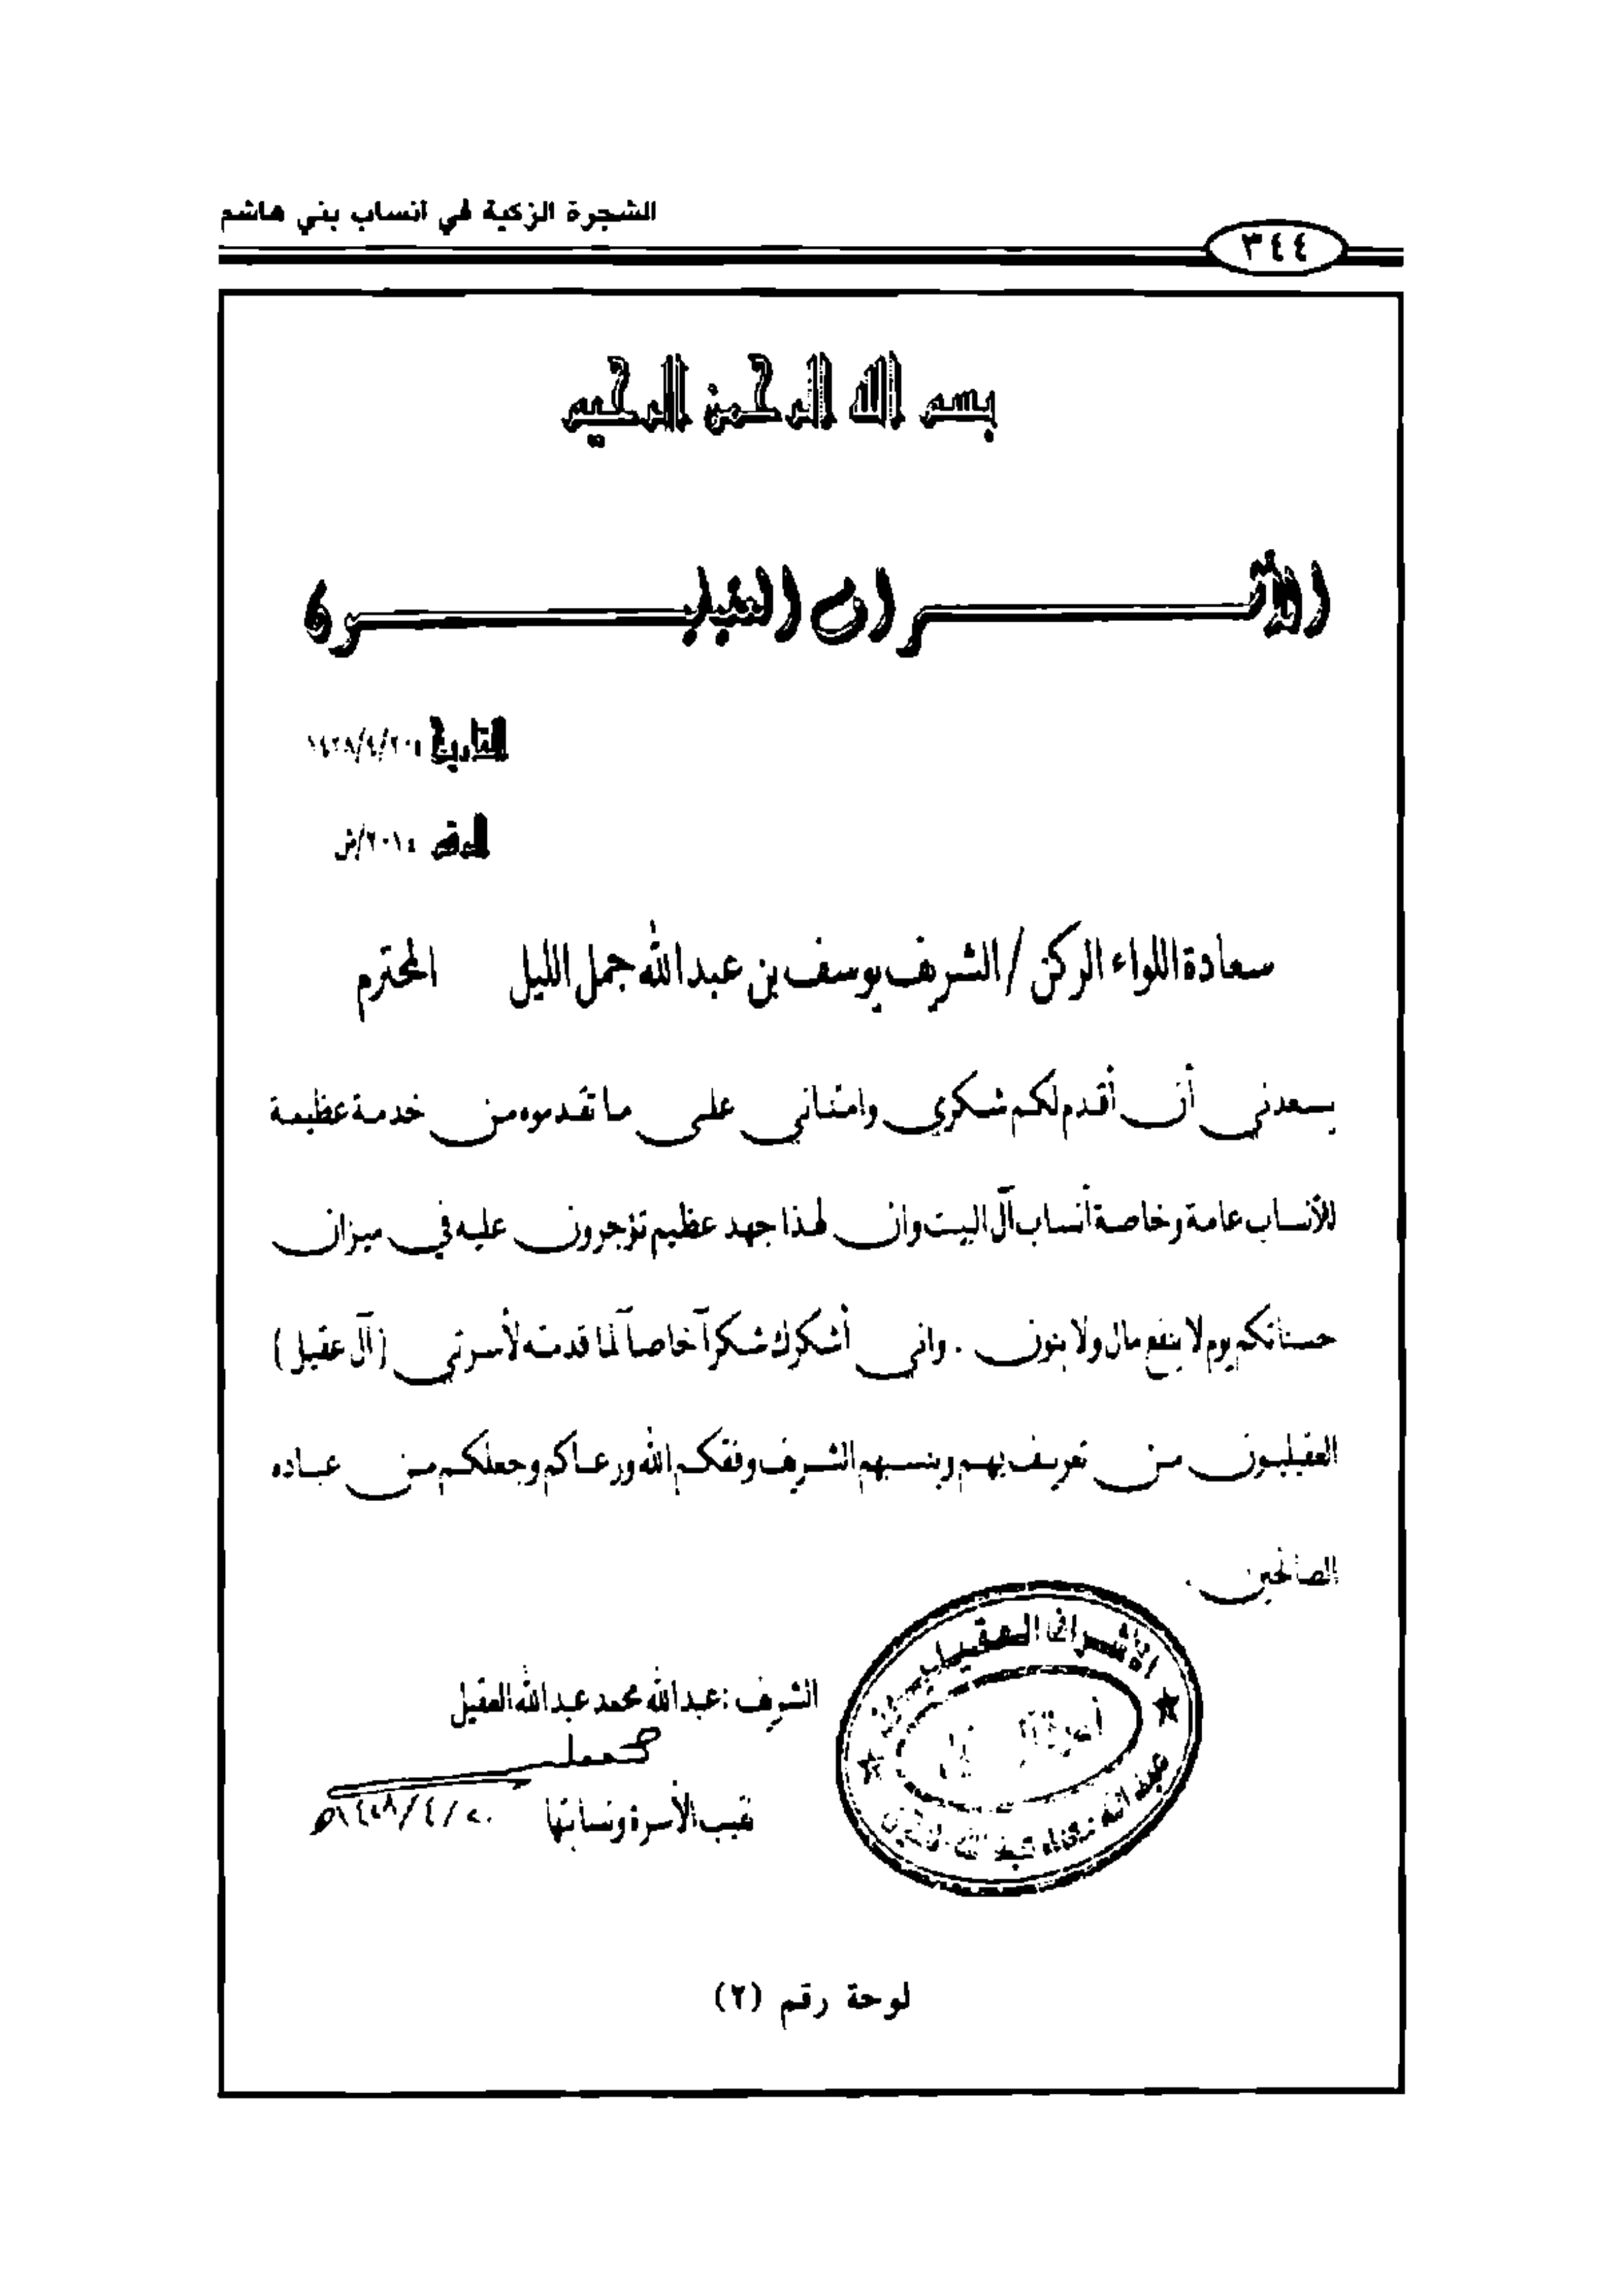 الشجرة الزكية في انساب بني هاشم
٣٤٤
بسم الله الرحمن الرحيم
الأشراف العقيليون
التاريخ ١٤٢٨/٤/٢٠
الرقم ٢٠١٤/ش
سعادة اللواء الركن / الشريف يوسف بن عبدالله جمل الليل المحترم
يسعدني أن أقدم لكم شكري وامتناني على ما تقدموه من خدمة عظيمة
للأنساب عامة وخاصة أنساب آل البيت وان لهذا جهد عظيم تؤجرون عليه في ميزان
حسناتكم يوم لا ينفع مال ولا بنون . واني أشكرك شكراً خاصاً لما قدمته لأسرتي (آل عقيل)
العقيليون من تعريف بهم وبنسبهم الشريف وفقكم الله ورعاكم وجعلكم من عباده
الصالحين .
الأشراف العقيليون
الشريف : عبدالله محمد عبدالله العقيل
نقيب الأسرة ونسابتها ١٤٢٨/٤/٢٠هـ
لوحة رقم (٢)